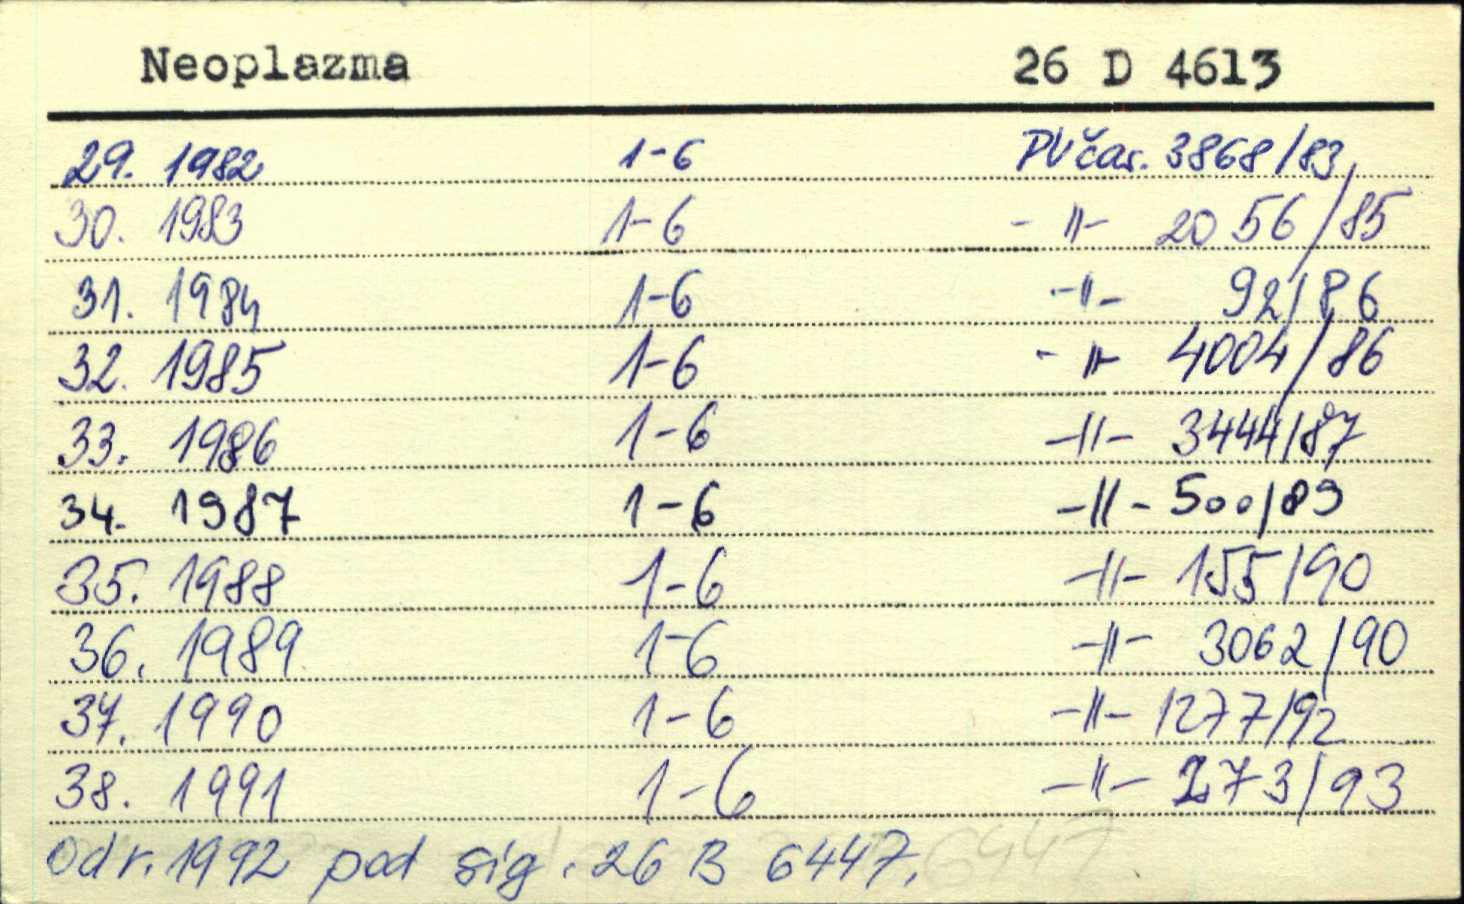 Neoplazma 26 D 4613
29. 1982 1-6 PV čas. 3868/83
30. 1983 1-6 -"- 2056/85
31. 1984 1-6 -"- 92/86
32. 1985 1-6 -"- 4004/86
33. 1986 1-6 -"- 3444/87
34. 1987 1-6 -"- 500/89
35. 1988 1-6 -"- 155/90
36. 1989 1-6 -"- 3062/90
37. 1990 1-6 -"- 1277/92
38. 1991 1-6 -"- 273/93
Od r. 1992 pod sig. 26 B 6447.